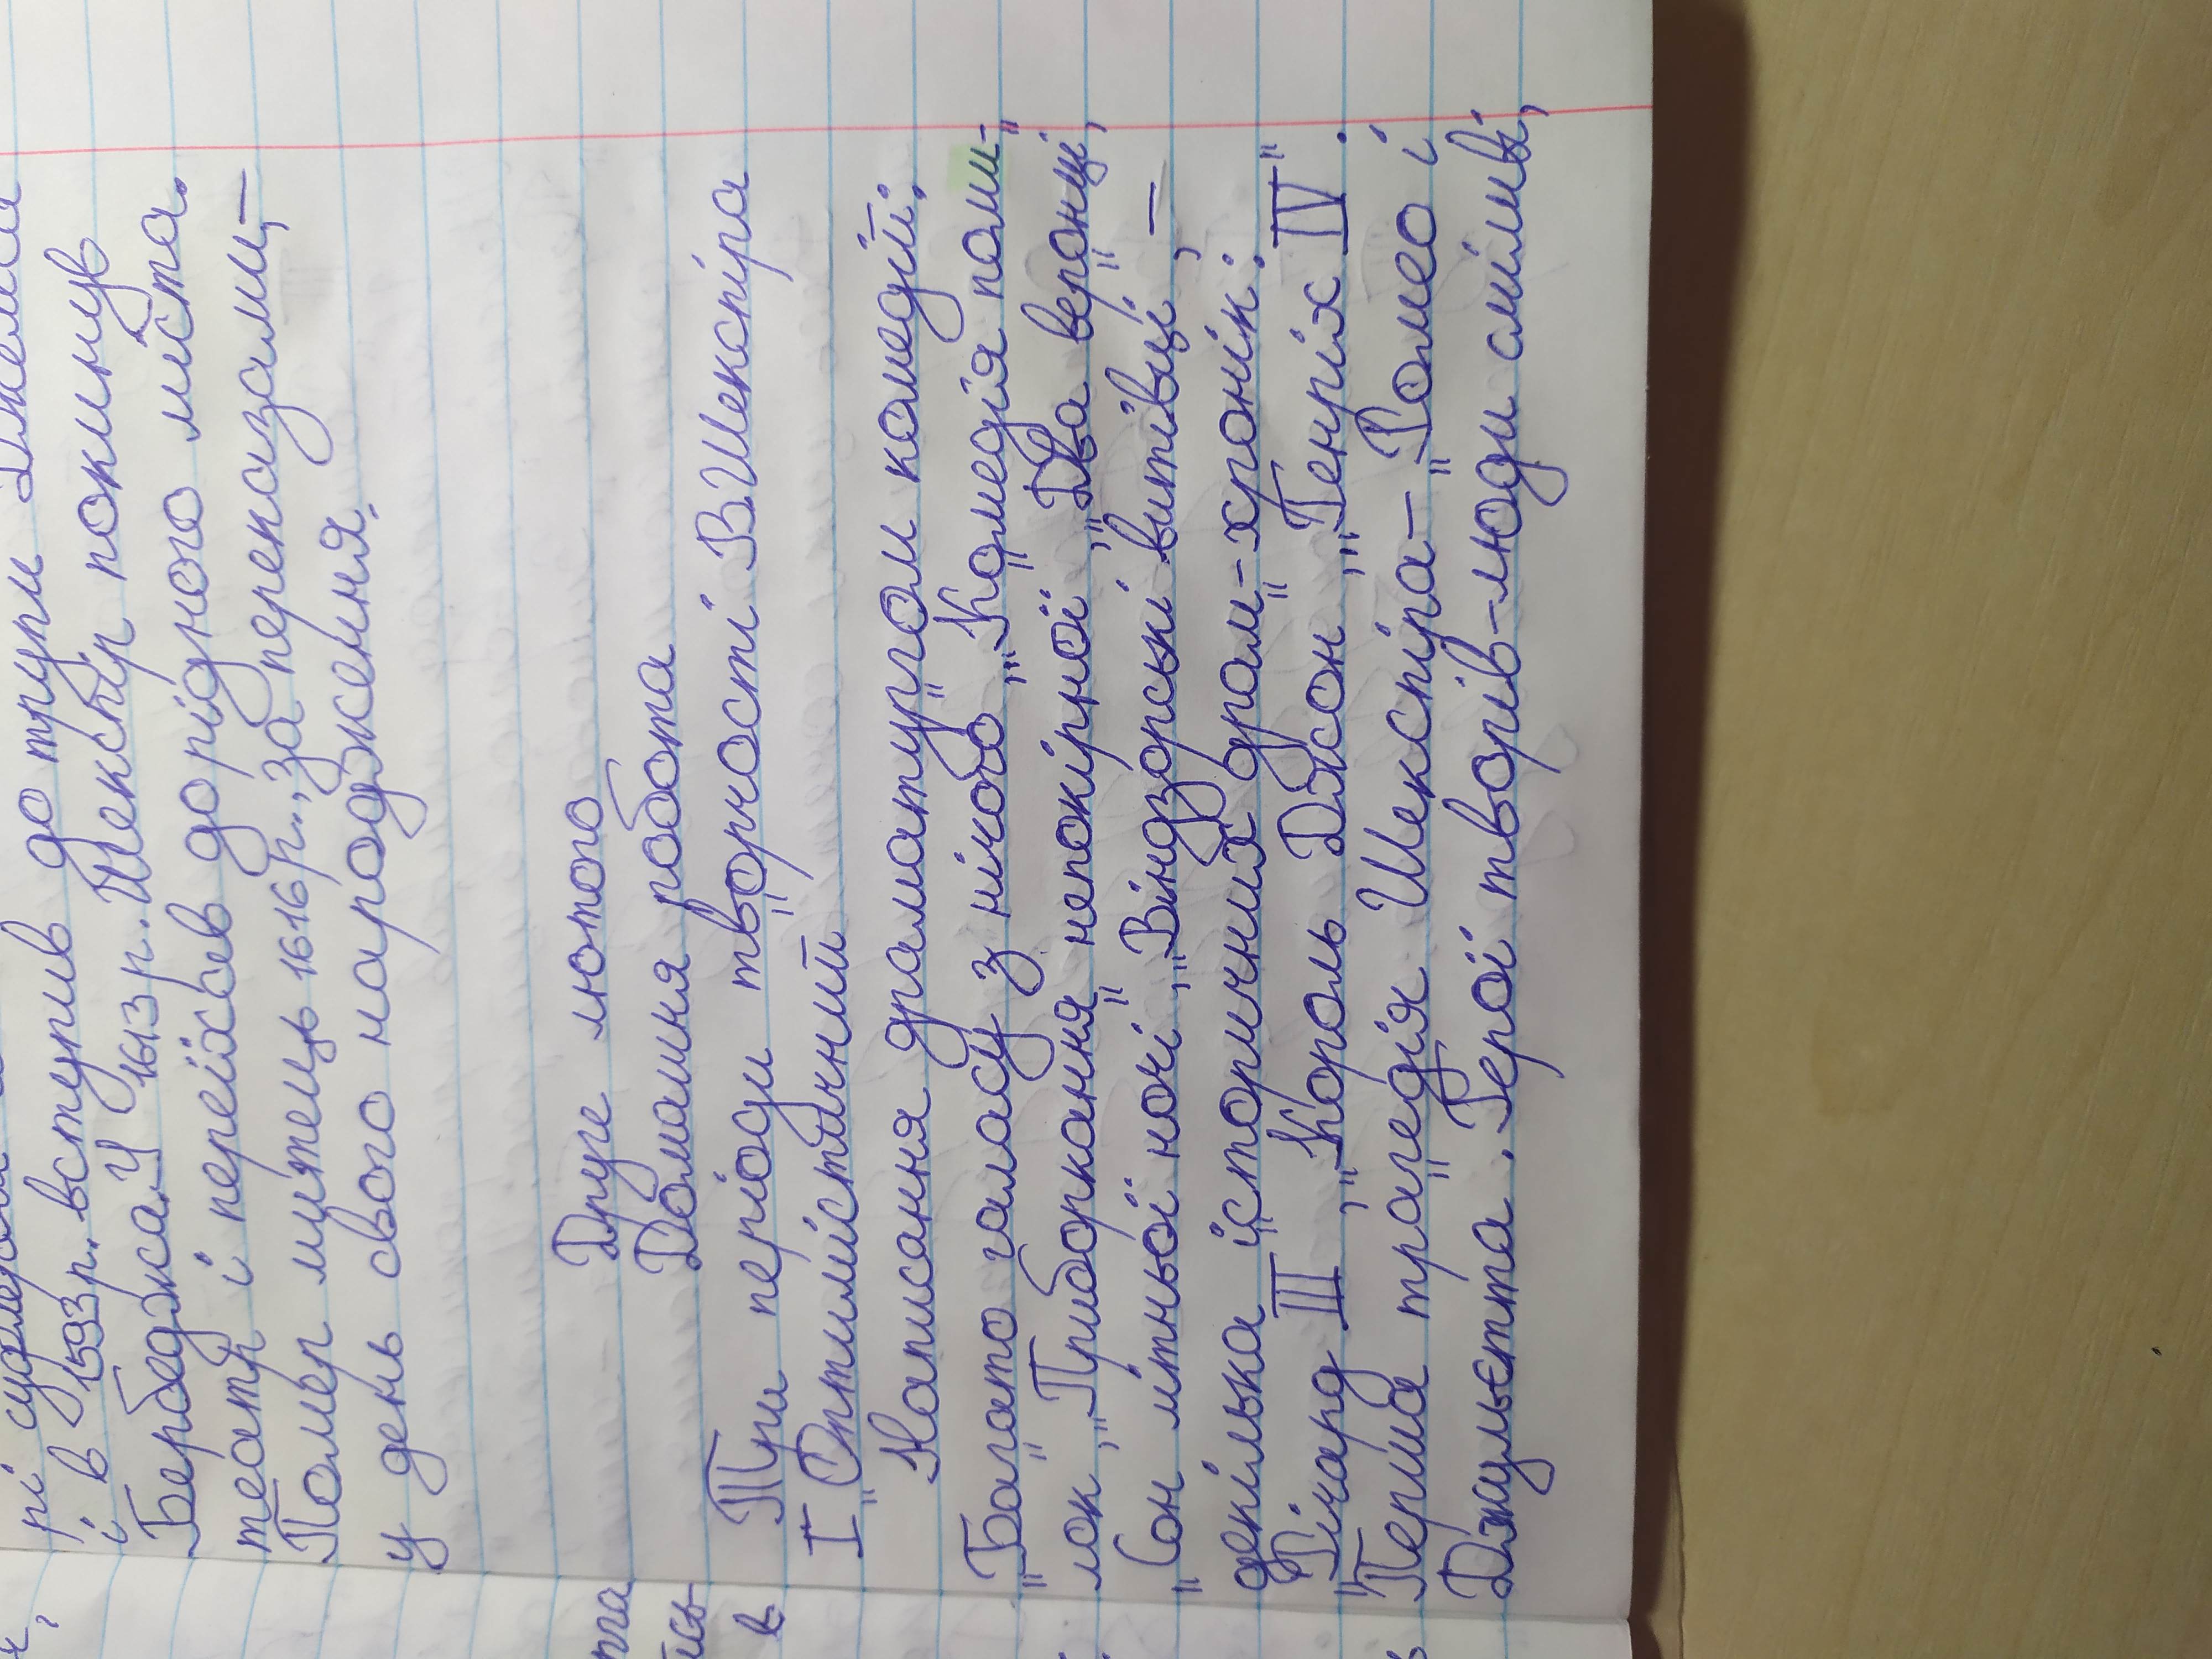 і в 1593р. вступив до трупи Джемса
Бербеджа. У 1613 р. Шекспір покинув
театр і переїхав до рідного міста.
Помер митець 1616 р., за переказами,-
у день свого народження.
Друге лютого
Домашня робота
Три періоди творчості В.Шекспіра
І Оптимістичний
Написання драматургом комедій:
"Багато галасу з нічого", "Комедія поми-
лок", "Приборкання непокірної", "Два веронці",
"Сон літньої ночі", "Віндзорські витівниці", -
декілька історичних драм-хронік:
"Річард ІІІ", "Король Джон", "Генріх IV".
Перша трагедія Шекспіра- "Ромео і
Джульєтта. Герої творів-люди сміливі,